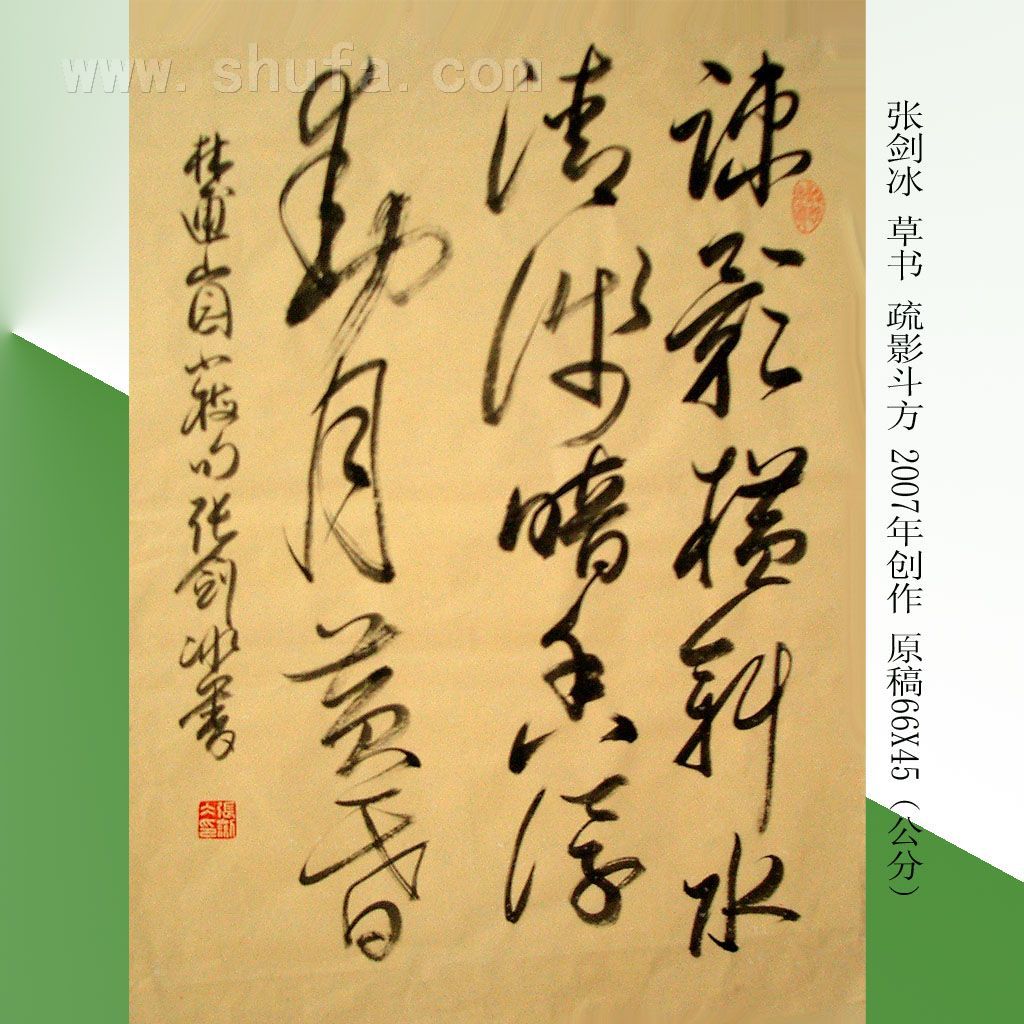 www.shufa.com
张剑冰 草书 疏影斗方 2007年创作 原稿66X45（公分）
疎影橫斜水
清淺暗香浮
動月黃昏
林逋山園小梅句张剑冰書